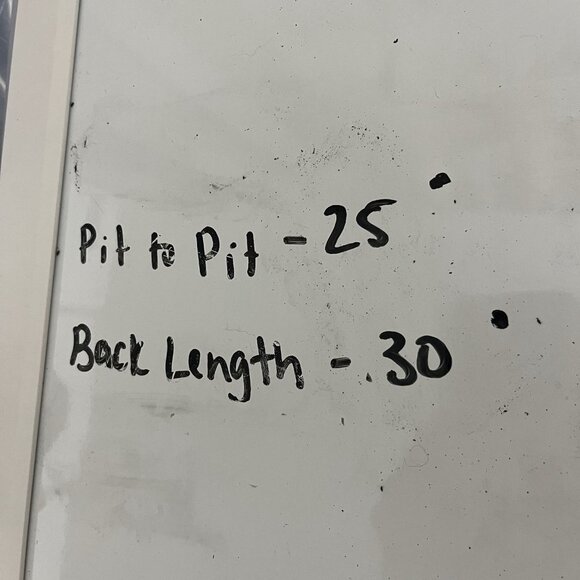 Pit to Pit - 25
Back Length - 30